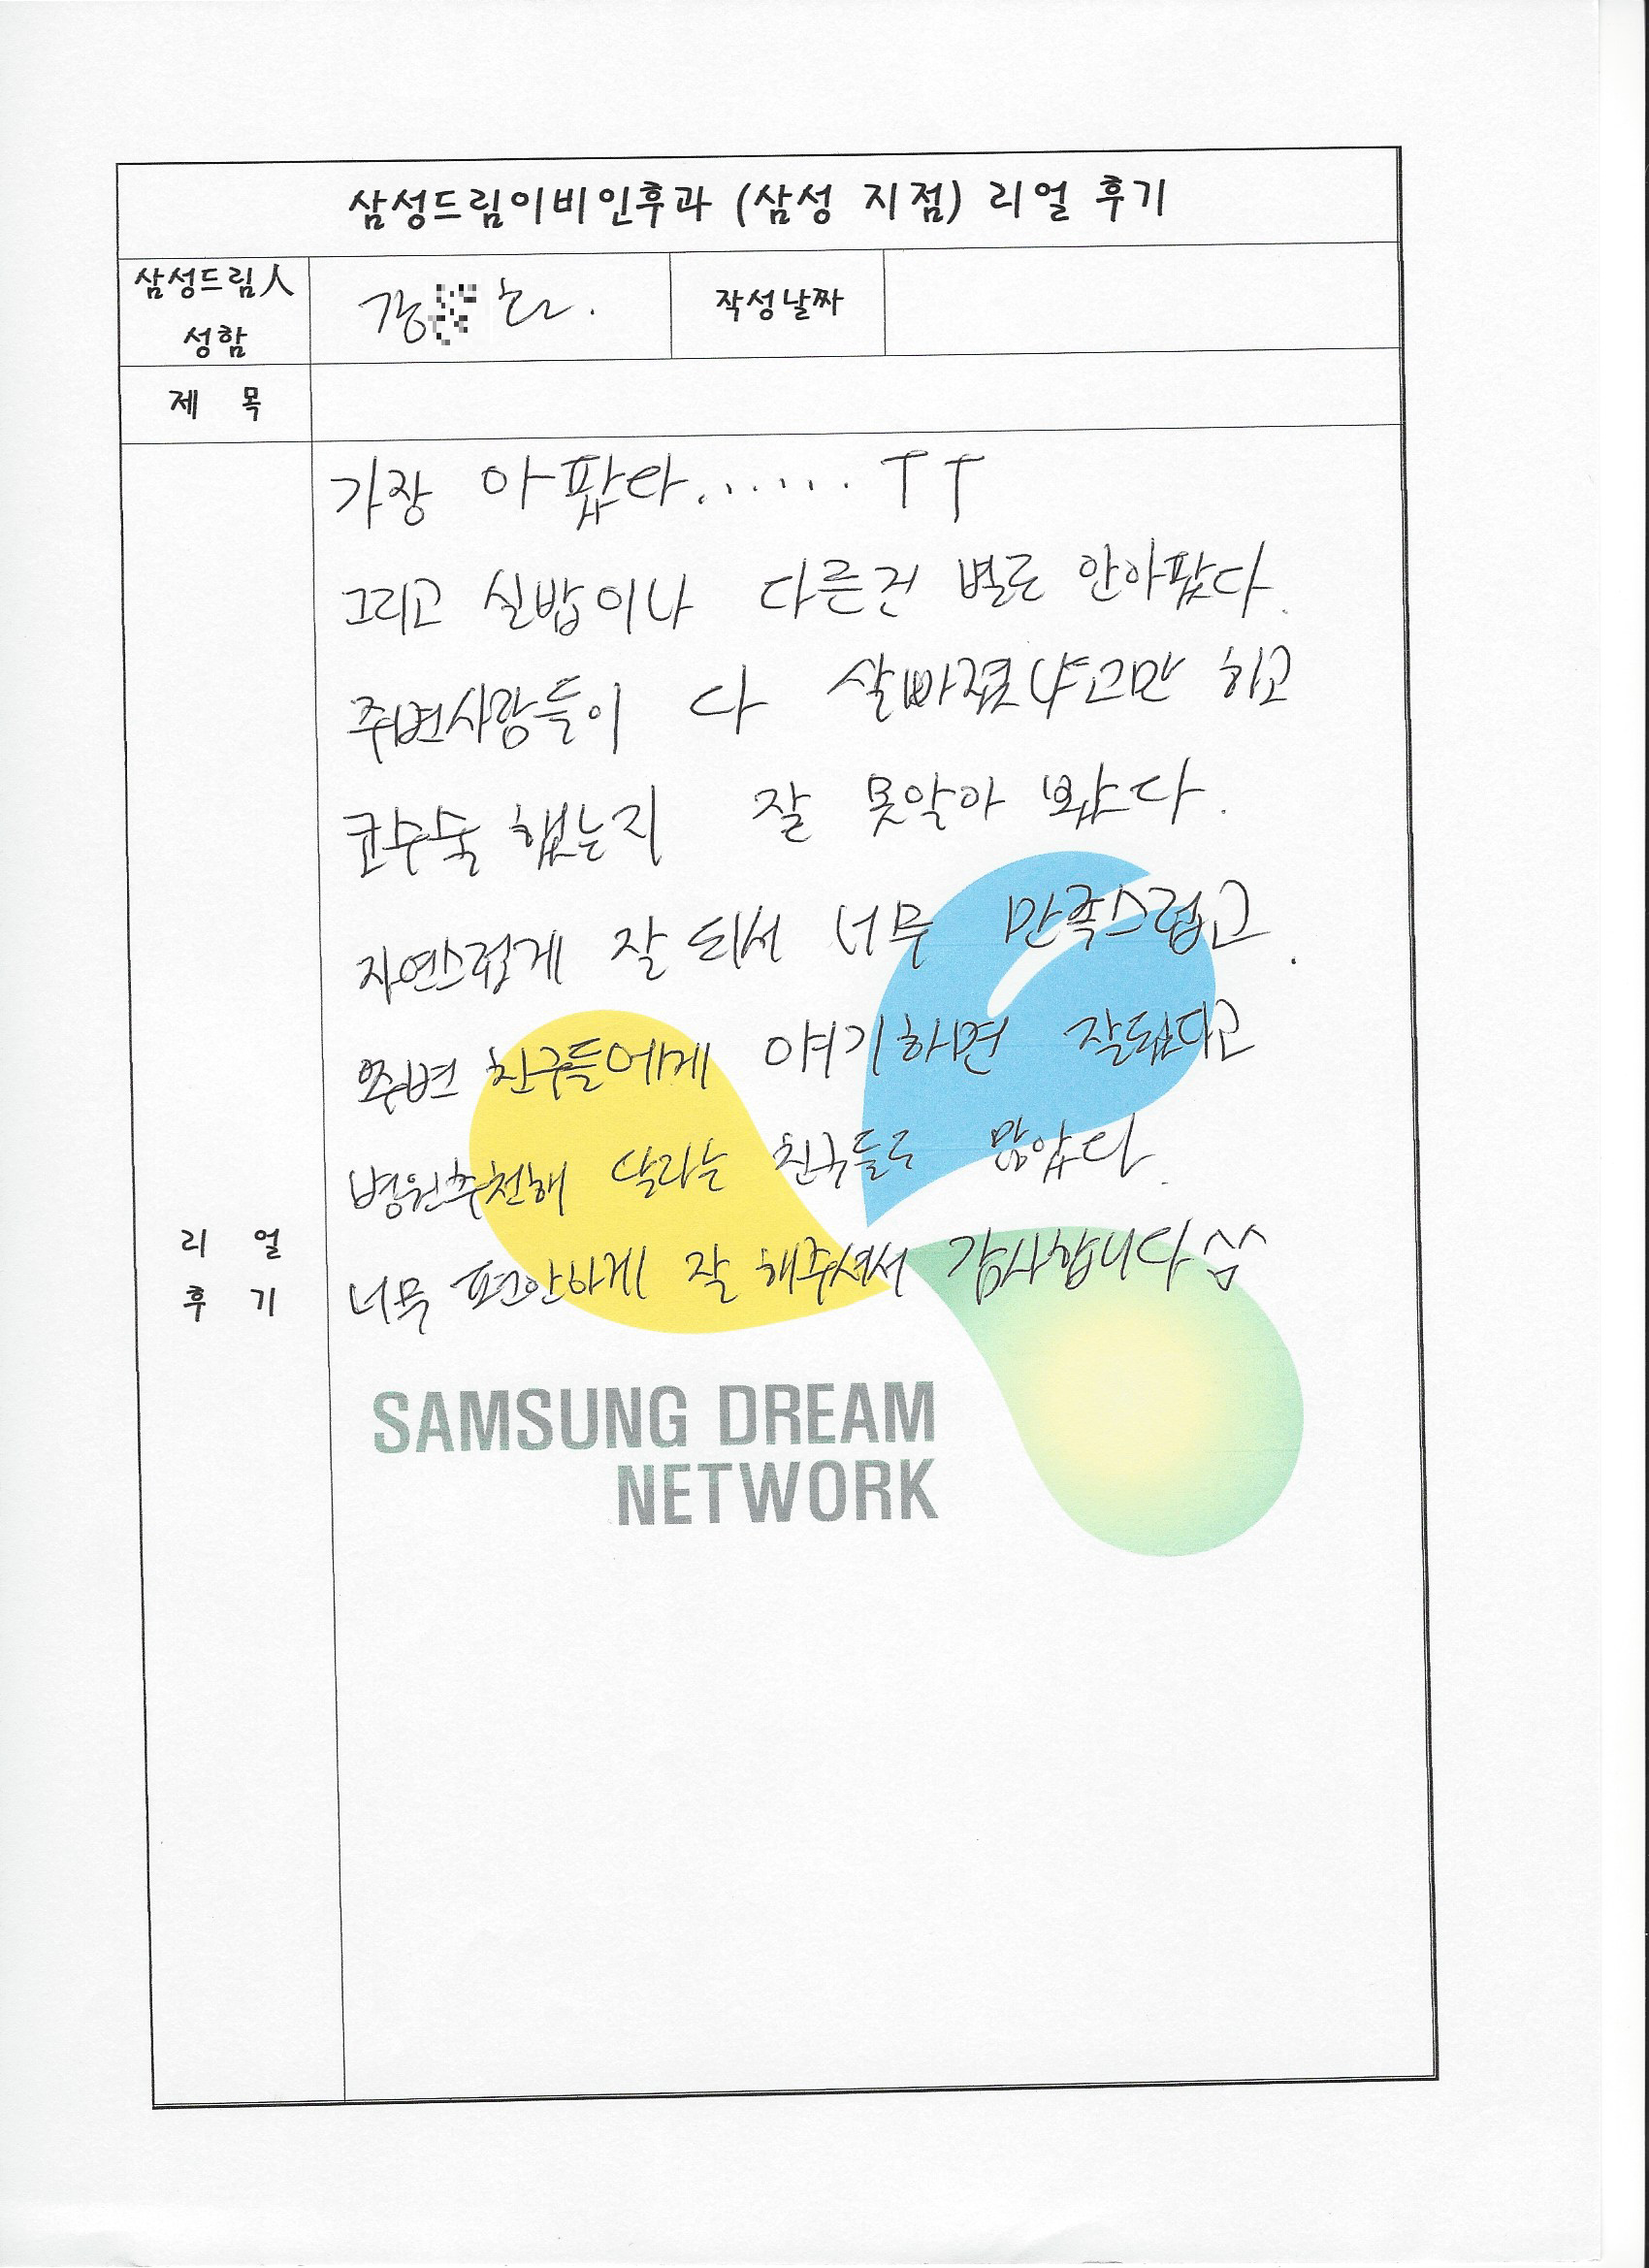 삼성드림이비인후과 (삼성 지점) 리얼 후기
삼성드림人
성함
강
작성날짜
제 목
가장 아팠다...... ㅜㅜ
그리고 실밥이나 다른건 별로 안아팠다.
주변사람들이 다 살빠졌냐고만 하고
코수술 했는지 잘 못알아 봤다.
자연스럽게 잘 되서 너무 만족스럽고.
주변 친구들에게 얘기하면 잘됐다고
병원추천해 달라는 친구들도 많았다.
너무 편안하게 잘 해주셔서 감사합니다^^
리 얼
후 기
SAMSUNG DREAM
NETWORK